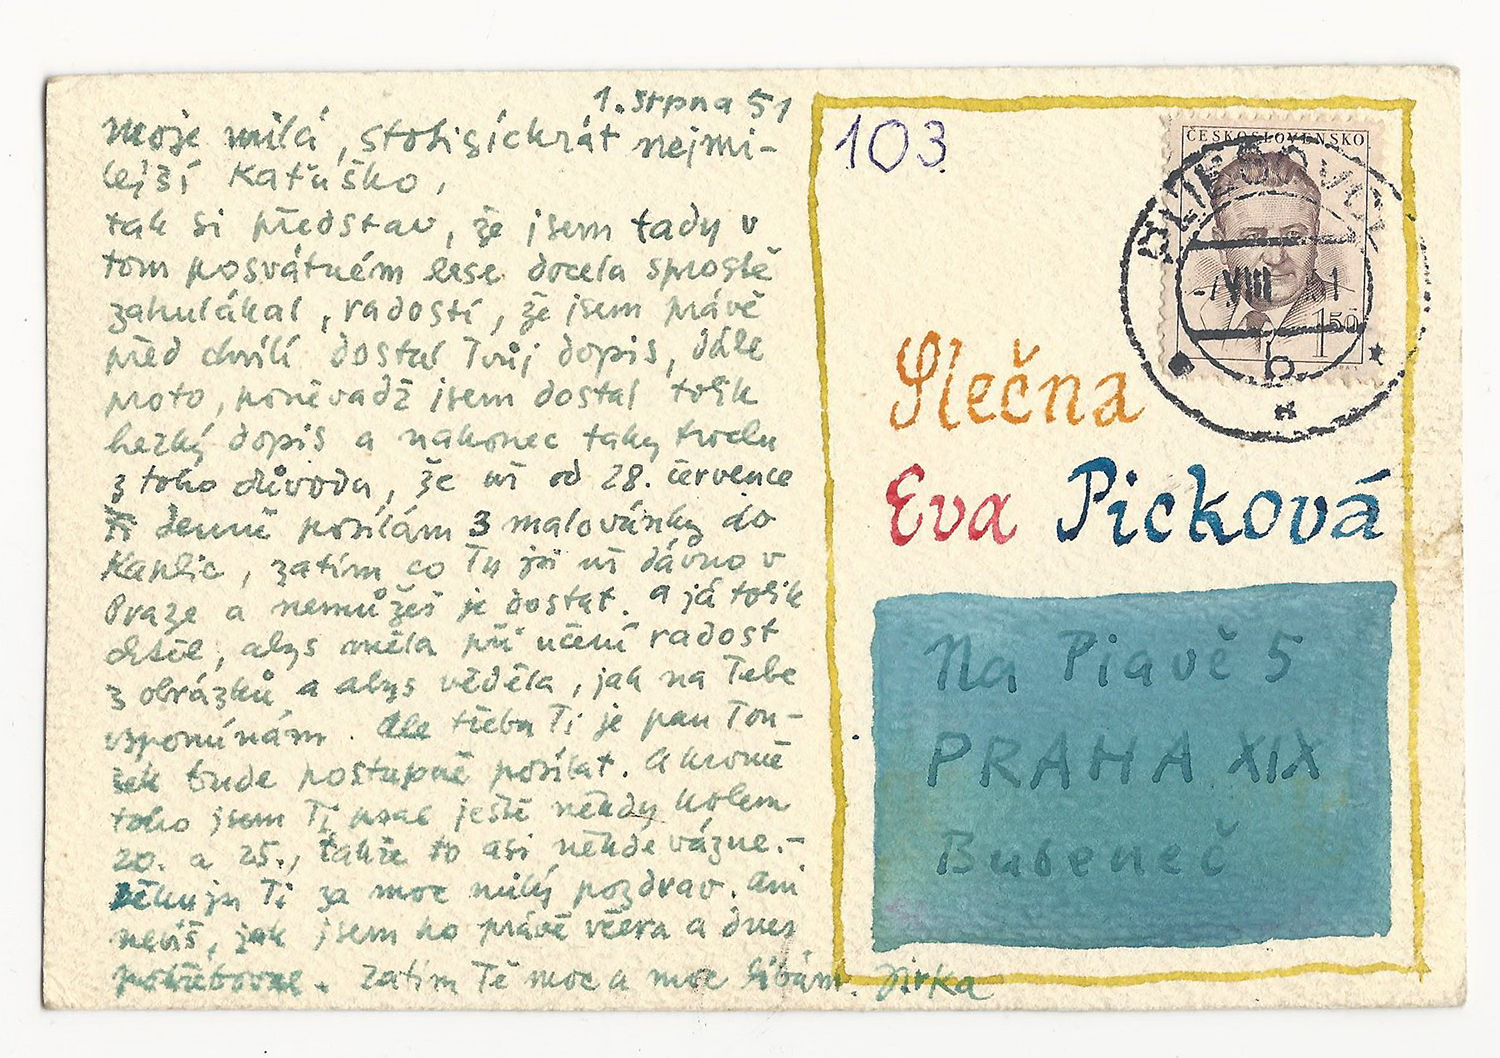 1. srpna 51
Moje milá, stotisíckrát nejmi-
lejší Katuško,
tak si představ, že jsem tady v
tom posvátném lese docela sprostě
zahulákal, radostí, že jsem právě
před chvílí dostal Tvůj dopis, dále
proto, poněvadž jsem dostal tolik
hezký dopis a nakonec taky trochu
z toho důvodu, že už od 28. července
Ti denně posílám 3 malovánky do
Kaplic, zatím co Ty jsi už dávno v
Praze a nemůžeš je dostat. A já tolik
chtěl, abys měla při učení radost
z obrázků a abys věděla, jak na Tebe
vzpomínám. Ale třeba Ti je pan Ton-
šek bude postupně posílat. A kromě
toho jsem Ti psal ještě někdy kolem
20. a 25., takže to asi někde vázne.-
Děkuju Ti za moc milý pozdrav. Ani
nevíš, jak jsem ho právě včera a dnes
potřeboval. Zatím Tě moc a moc líbám. Jirka
103.
ČESKOSLOVENSKO
-7.VIII 51
1 50
b
Slečna
Eva Picková
Na Piavě 5
PRAHA XIX
Bubeneč